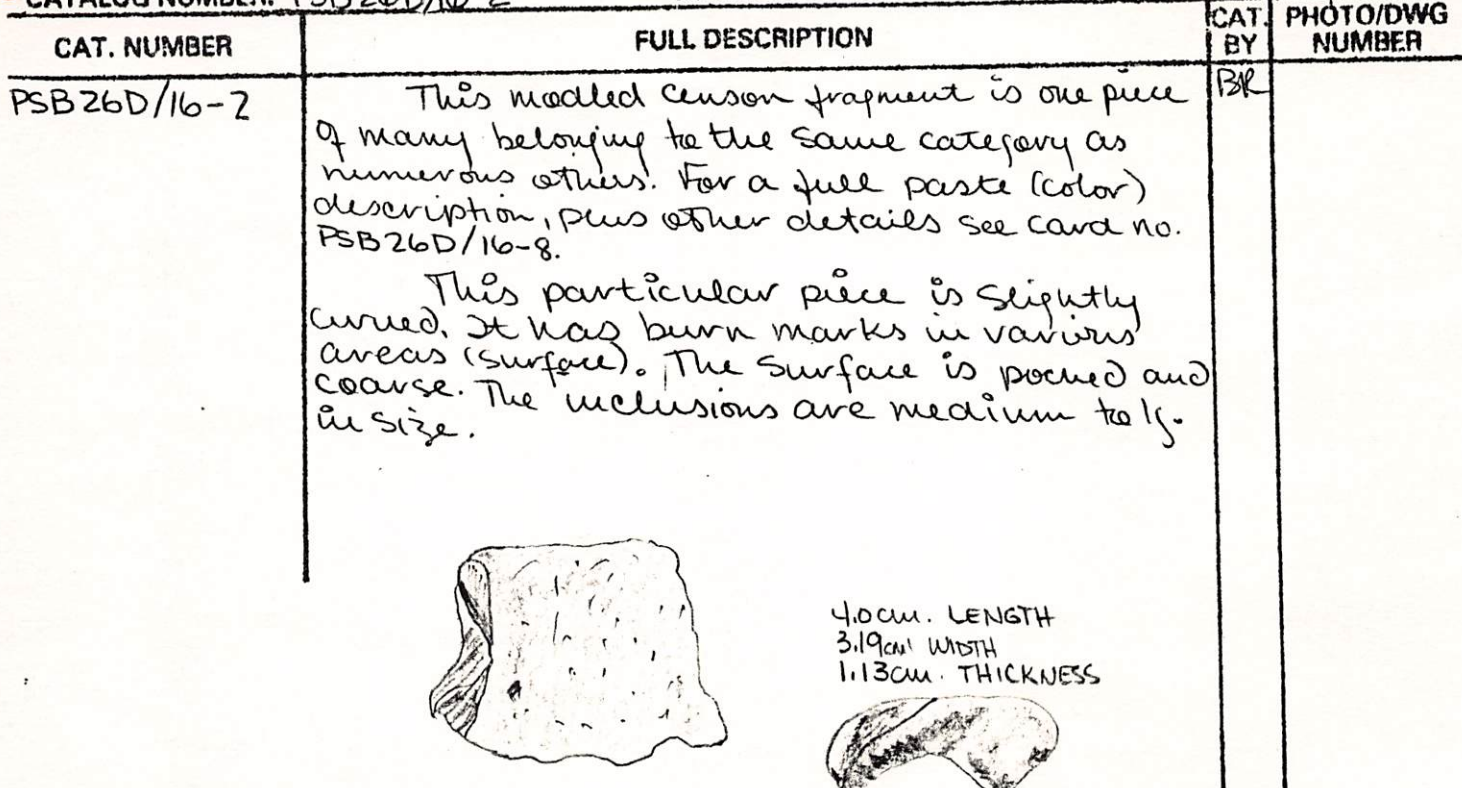 CATALOG NUMBER: PSB26D/16-2
CAT. NUMBER
FULL DESCRIPTION
CAT. BY
PHOTO/DWG NUMBER
PSB26D/16-2
BR
This modled censor fragment is one piece
of many belonging to the same category as
numerous others. For a full paste (color)
description, plus other details see card no.
PSB26D/16-8.
This particular piece is slightly
curved. It has burn marks in various
areas (surface). The surface is pocked and
coarse. The inclusions are medium to lg.
in size.
4.0cm. LENGTH
3.19cm WIDTH
1.13cm. THICKNESS